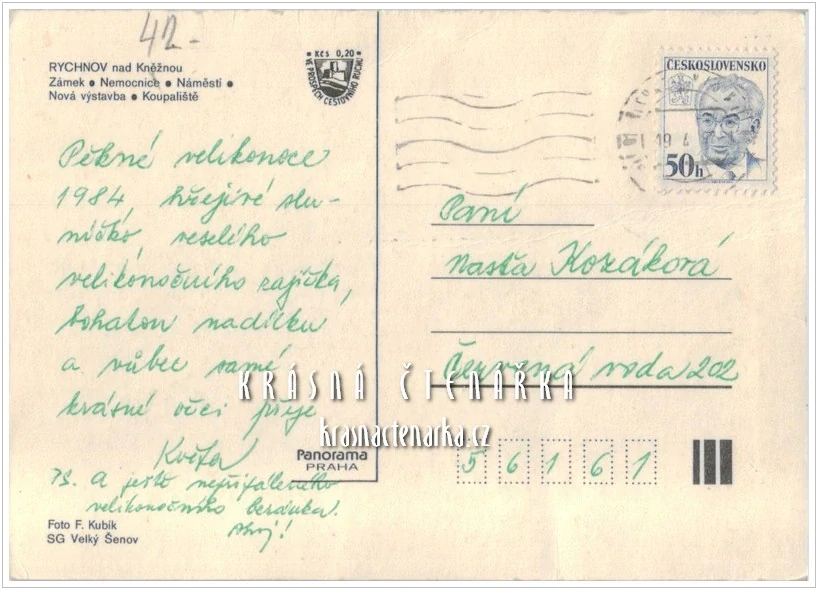 42.-
RYCHNOV nad Kněžnou
Zámek • Nemocnice • Náměstí •
Nová výstavba • Koupaliště
Kčs 0,20
VE PROSPĚCH CESTOVNÍHO RUCHU
ČESKOSLOVENSKO
50h
19 4
Pěkné velikonoce
1984, hřejivé slu-
níčko, veselého
velikonočního zajíčka,
bohatou nadílku
a vůbec samé
krásné věci přeje
Květa
PS. A ještě nepřipáleného
velikonočního beránka.
Ahoj!
Paní
Nasťa Kozáková
Červená voda 202
KRÁSNÁ ČTENÁŘKA
krasnactenarka.cz
Panorama
PRAHA
56161
Foto F. Kubík
SG Velký Šenov